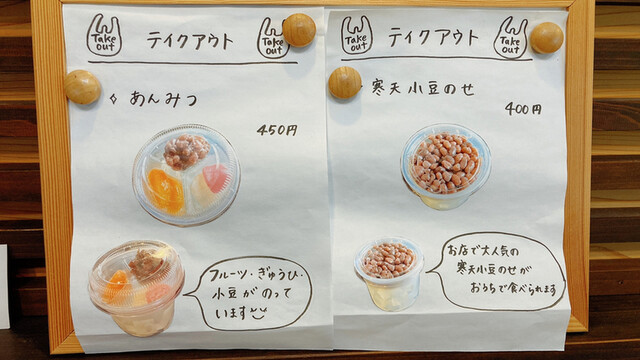 Take out
テイクアウト
Take out
◇ あんみつ
450円
フルーツ・ぎゅうひ・
小豆がのって
います
Take out
テイクアウト
Take out
寒天小豆のせ
400円
お店で大人気の
寒天小豆のせが
おうちで食べられます